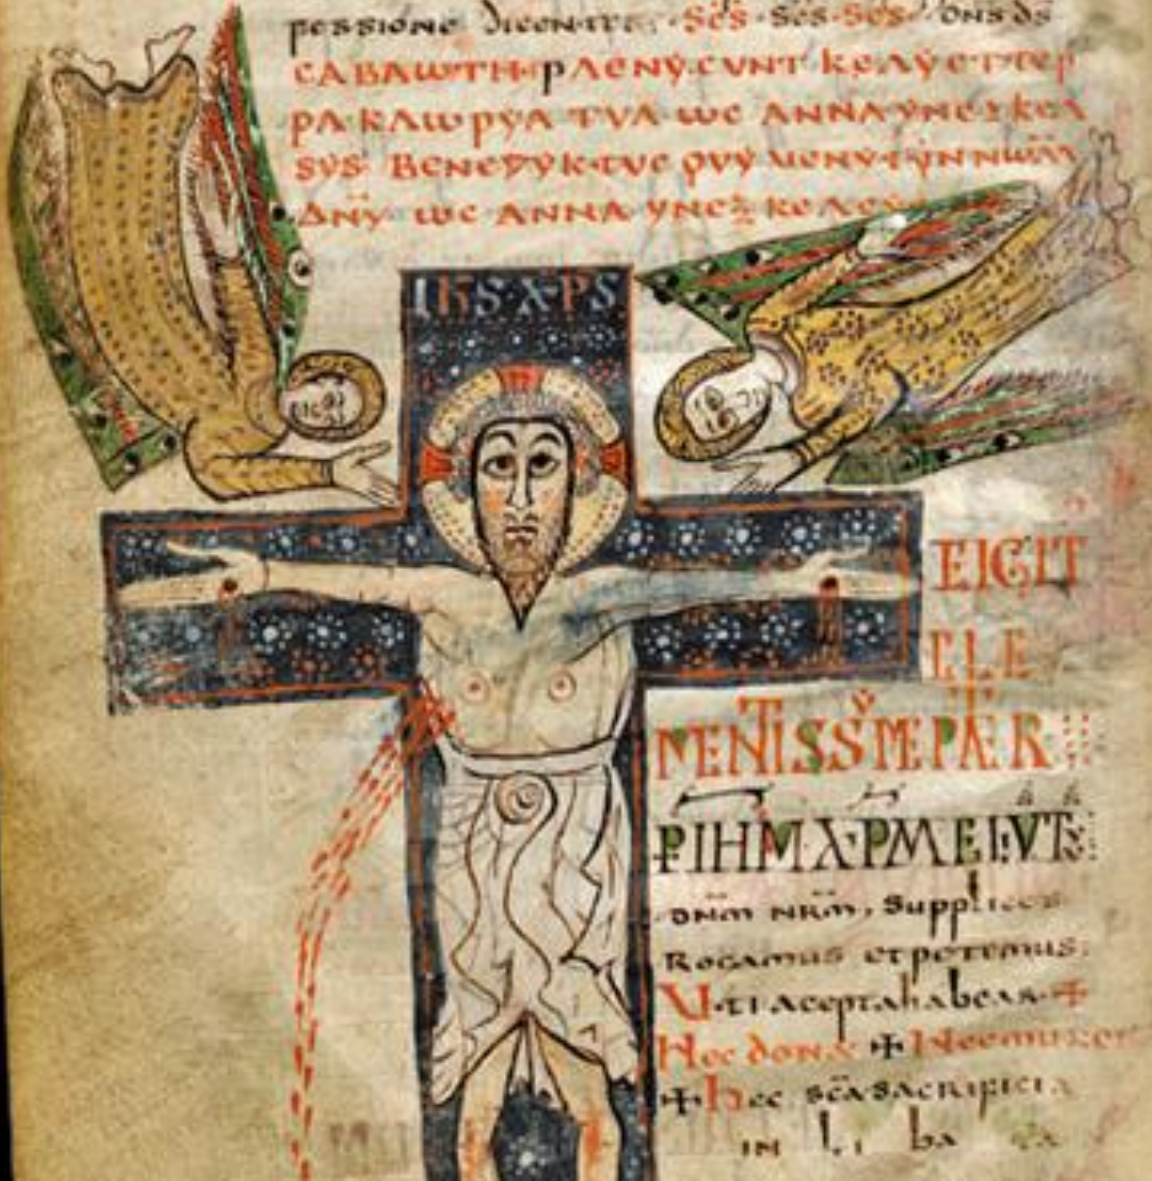 pessione dicentes · Scs · Scs · Scs · Dns ds
CABAωTH · PΛENY · CVNT KEΛY ET TEP
PA KΛωPYA TVA ωC ANNA YNEξKEΛ
SYS BENEDYKTVC QVY VENYT YN NωM
ΔNY ωC ANNA YNEξ KEΛCY
IHS · XPS
TEIGIT
CLE
MENTISSYME PATER
P IHM XPM FILIVM TV
dnm nrm, supplices
Rogamus et petemus
Uti accepta habeas +
Hec dona + Hec munera
+ hec sca sacrificia
IN li ba ta